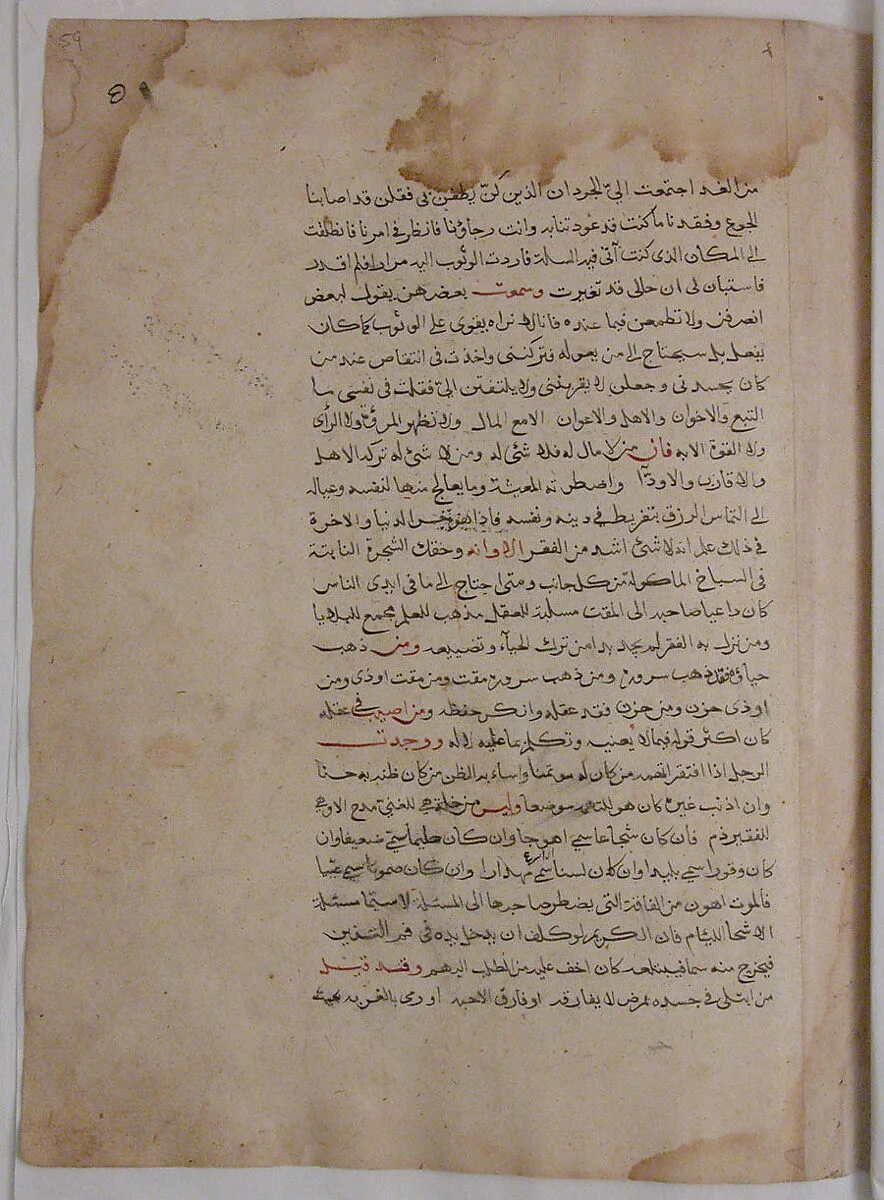 59
من الغد اجتمعت الي الجردان الذين كن يطفن بي فقلن قد اصابنا
الجوع وفقدنا ما كنت قد عودتنا به وانت رجاؤنا فانظر في امرنا فانطلقت
الى المكان الذي كنت آتي فيه السلة فاردت الوثوب اليه مرارا فلم اقدر
فاستبان لي ان حالي قد تغيرت وسمعت بعضهن يقول لبعض
انصرفن ولا تطمعن فيما عنده فانا لا نراه يقوى على الوثوب كما كان
يفعل بل سيحتاج الى من يعوله فتركنني واخذت في انتقاص عند من
كان يحسدني وجعلن لا يقربنني ولا يلتفتن الي فقلت في نفسي ما
التبع والاخوان والاهل والاعوان الا مع المال ولا تظهر المروة ولا الرأى
ولا القوة الا به فان من لا مال له فلا شئ له ومن لا شئ له تركه الاهل
والاقارب والاودآ واضطرته المعيشة وما يعالج منها لنفسه وعياله
الى التماس الرزق بتفريط في دينه ونفسه فاذا الدنيا والاخرة
في ذلك علم انه لا شئ اشد من الفقر الا وانه وخفك الشجرة النابتة
في السباخ الماكولة من كل جانب ومتى احتاج الى ما في ايدى الناس
كان داعيا صاحبه الى المقت مسلبة للعقل مذهب للعلم مجمع للبلايا
ومن نزل به الفقر لم يجد بدا من ترك الحيآء وتضييعه ومن ذهب
حياؤه فقد ذهب سروره ومن ذهب سروره مقت ومن مقت اوذى ومن
اوذى حزن ومن حزن فقد عقله وانكر حفظه ومن اصيب في عقله
كان اكثر قوله فيما لا يعنيه وتكلم بما عليه لا له ووجدت
الرجل اذا افتقر اتهمه من كان له موتمنا واساء به الظن من كان ظنه به حسنا
وان اذنب غيره كان هو للتهمة موضعا وليس من خلة هي للغني مدح الا وهي
للفقير ذم فان كان شجاعا سمي اهوجا وان كان حليما سمي ضعيفا وان
كان وقورا سمي بليدا وان كان لسنا سمي مهدارا وان كان صموتا سمي عييا
فالموت اهون من الفاقة التي يضطر صاحبها الى المسئلة لا سيما مسئلة
الاشحا الليئام فان الكريم لو كلف ان يدخل يده في فم التنين
فيخرج منه سما فيبتلعه كان اخف عليه من الطلب اليهم وقد قيل
من ابتلى في جسده بمرض لا يفارقه او فارق الاحبه او رمى بالغربه